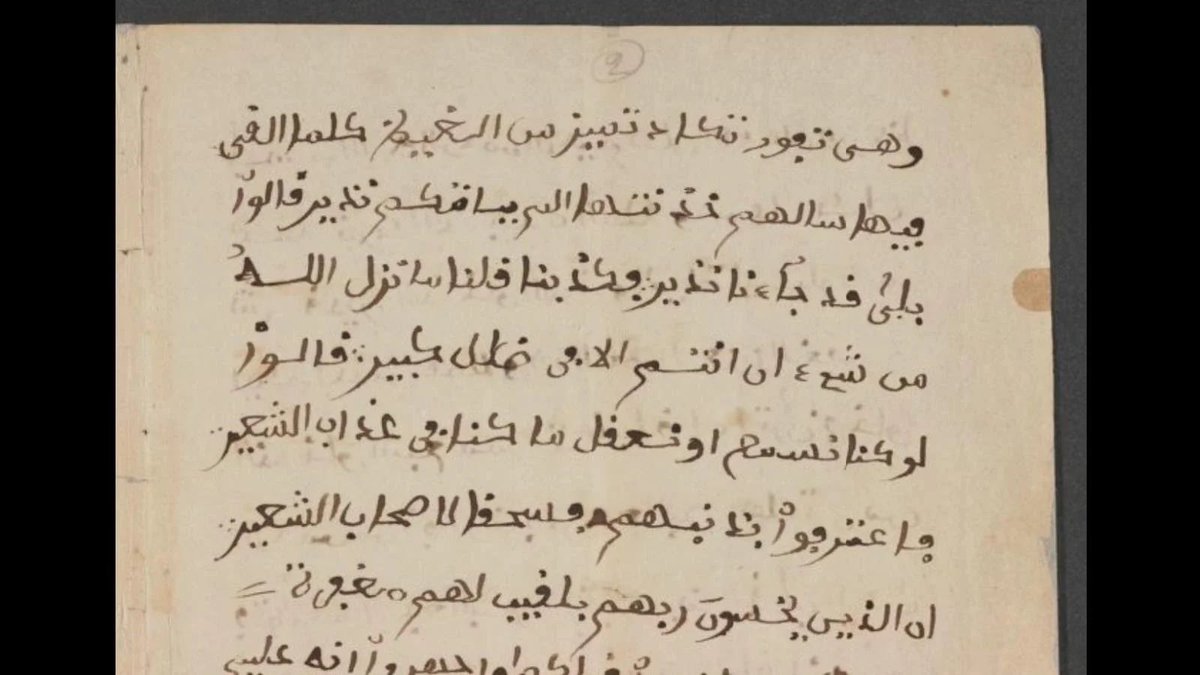 وهى تفور تكاد تميز من الغيظ كلما القى
فيها سالهم خذنتها الم ياتكم نذير قالوا
بلى قد جاءنا نذير فكذبنا قلنا ما نزل الله
من شىء ان انتم الا فى ضلل كبير قالوا
لو كنا نسمع او نعقل ما كنا فى عذاب الشعير
فاعترفوا بذنبهم فسحقا لاصحاب الشعير
ان الذين يخشون ربهم بلغيب لهم مغفرة
انه عليم